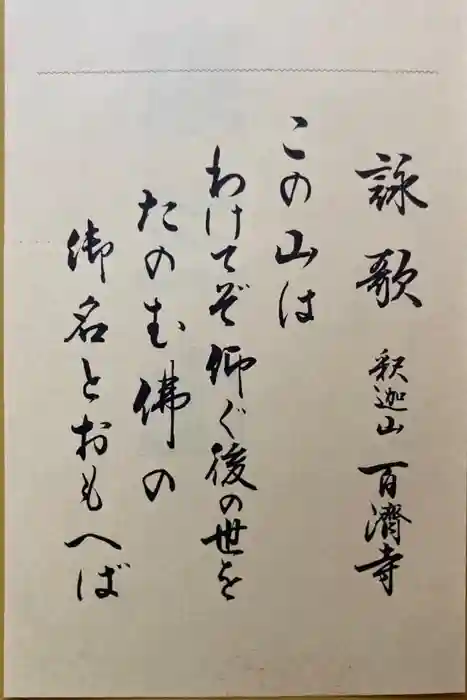 詠歌 釈迦山 百濟寺
この山は
わけてぞ仰ぐ後の世を
たのむ佛の
御名とおもへば